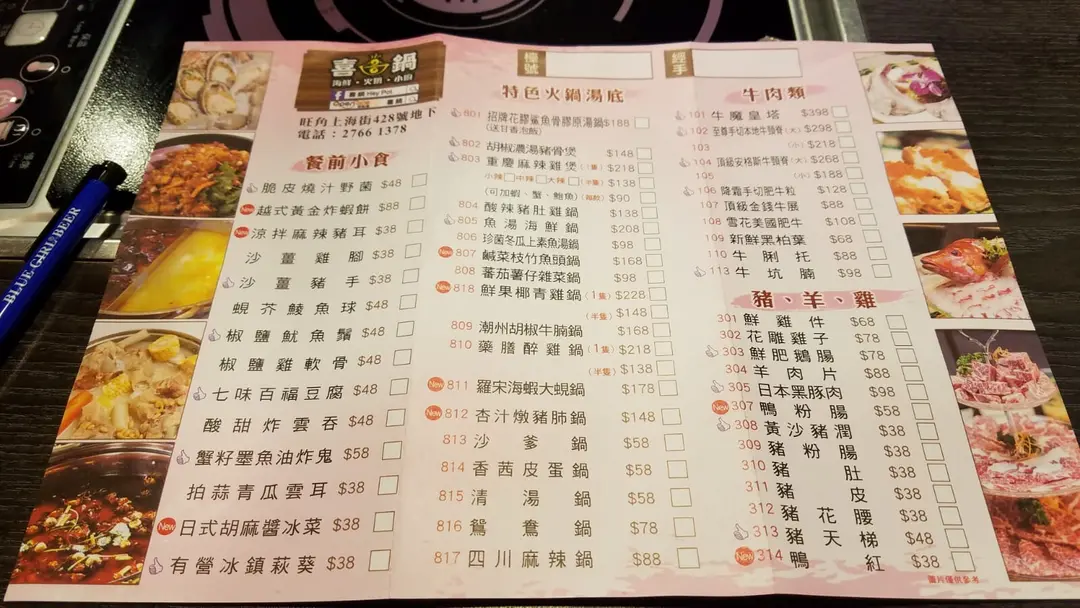 喜喜鍋
海鮮、火鍋、小廚
喜鍋 Hey Pot
喜鍋
旺角上海街428號地下
電話：2766 1378
餐前小食
脆皮燒汁野菌 $48
New 越式黃金炸蝦餅 $88
New 涼拌麻辣豬耳 $38
沙薑雞腳 $38
沙薑豬手 $38
蜆芥鯪魚球 $48
椒鹽魷魚鬚 $48
椒鹽雞軟骨 $48
七味百福豆腐 $48
酸甜炸雲吞 $48
蟹籽墨魚油炸鬼 $58
拍蒜青瓜雲耳 $38
New 日式胡麻醬冰菜 $38
有營冰鎮萩葵 $38
檯號
經手
特色火鍋湯底
801 招牌花膠鯊魚骨膠原湯鍋 $188
(送甘香泡飯)
802 胡椒濃湯豬骨煲 $148
803 重慶麻辣雞煲 (1隻) $218
小辣 中辣 大辣 (半隻) $138
(可加蝦、蟹、鮑魚) (每款) $90
804 酸辣豬肚雞鍋 $138
805 魚湯海鮮鍋 $208
806 珍菌冬瓜上素魚湯鍋 $98
New 807 鹹菜枝竹魚頭鍋 $168
808 蕃茄薯仔雜菜鍋 $98
New 818 鮮果椰青雞鍋 (1隻) $228
(半隻) $148
809 潮州胡椒牛腩鍋 $168
810 藥膳醉雞鍋 (1隻) $218
(半隻) $138
New 811 羅宋海蝦大蜆鍋 $178
New 812 杏汁燉豬肺鍋 $148
813 沙爹鍋 $58
814 香茜皮蛋鍋 $58
815 清湯鍋 $58
816 鴛鴦鍋 $78
817 四川麻辣鍋 $88
牛肉類
101 牛魔皇塔 $398
102 至尊手切本地牛頸脊 (大) $298
103 (小) $218
104 頂級安格斯牛頸脊 (大) $268
105 (小) $188
106 降霜手切肥牛粒 $128
107 頂級金錢牛展 $88
108 雪花美國肥牛 $108
109 新鮮黑柏葉 $68
110 牛脷托 $88
113 牛坑腩 $98
豬、羊、雞
301 鮮雞件 $68
302 花雕雞子 $78
303 鮮肥鵝腸 $78
304 羊肉片 $88
305 日本黑豚肉 $98
New 307 鴨粉腸 $58
308 黃沙豬潤 $38
309 豬粉腸 $38
310 豬肚 $38
311 豬皮 $38
312 豬花腰 $38
313 豬天梯 $48
New 314 鴨紅 $38
圖片僅供參考
BLUE GIRL BEER